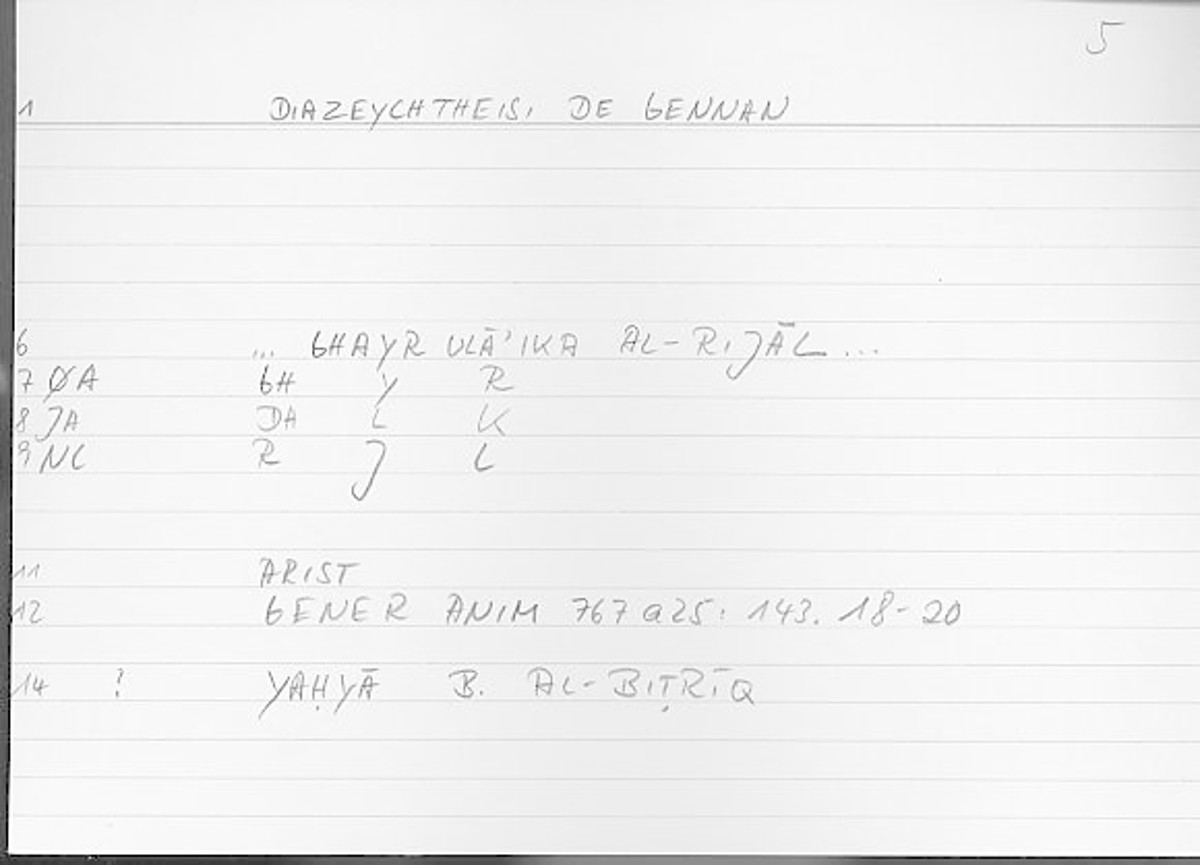 5
1 DIAZEYCHTHEISI DE GENNAN
6 ... GHAYR ULĀ'IKA AL-RIJĀL ...
7 ØA GH Y R
8 JA DH L K
9 NL R J L
11 ARIST
12 GENER ANIM 767 a 25: 143. 18-20
14 ? YAḤYĀ B. AL-BIṬRĪQ